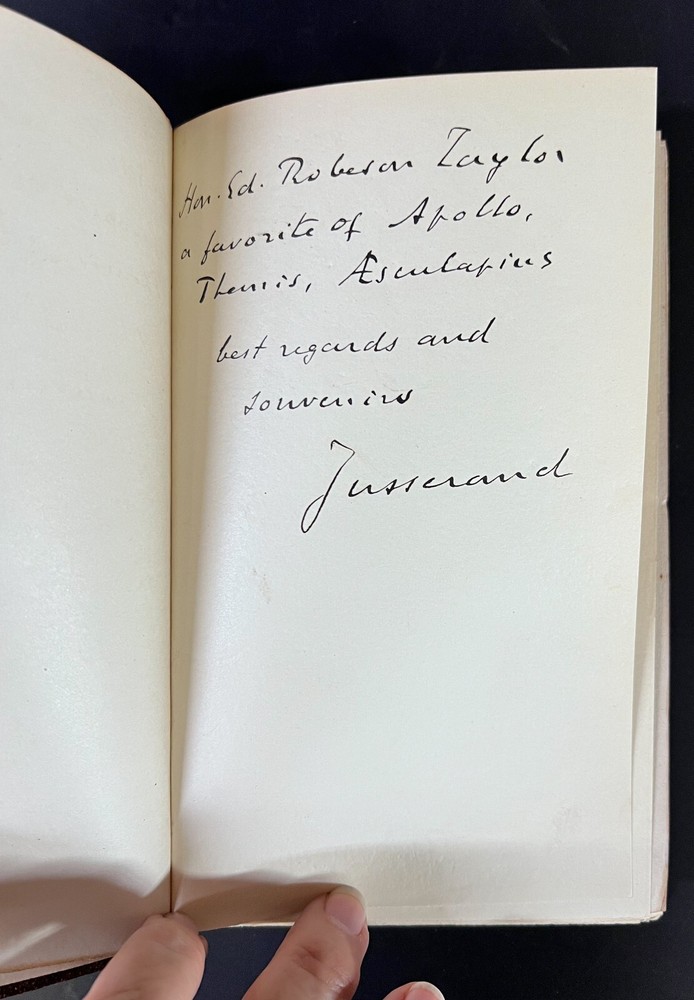 Hon. Ed. Robeson Taylor
a favorite of Apollo,
Themis, Æsculapius
best regards and
souvenirs
Jusserand